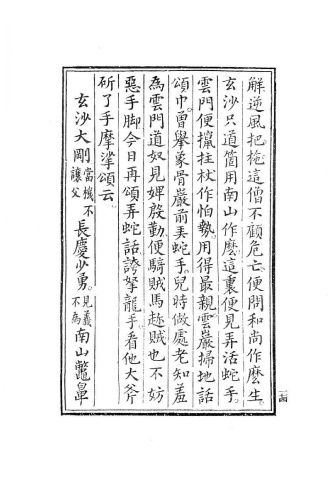 解逆風把柂這僧不顧危亡便問和尚作麽生
玄沙只道箇用南山作麽這裏便見弄活蛇手
雲門便攛拄杖作怕勢用得最親雲巖掃地話
頌巾曾舉象骨巖前美蛇手兒時做處老知羞
為雲門道奴見婢殷勤便騎賊馬趂賊也不妨
惡手脚今日再頌弄蛇話誇拏龍手看他大斧
斫了手摩挲頌云
玄沙大剛當機不讓父長慶少勇見義不為南山鼈鼻